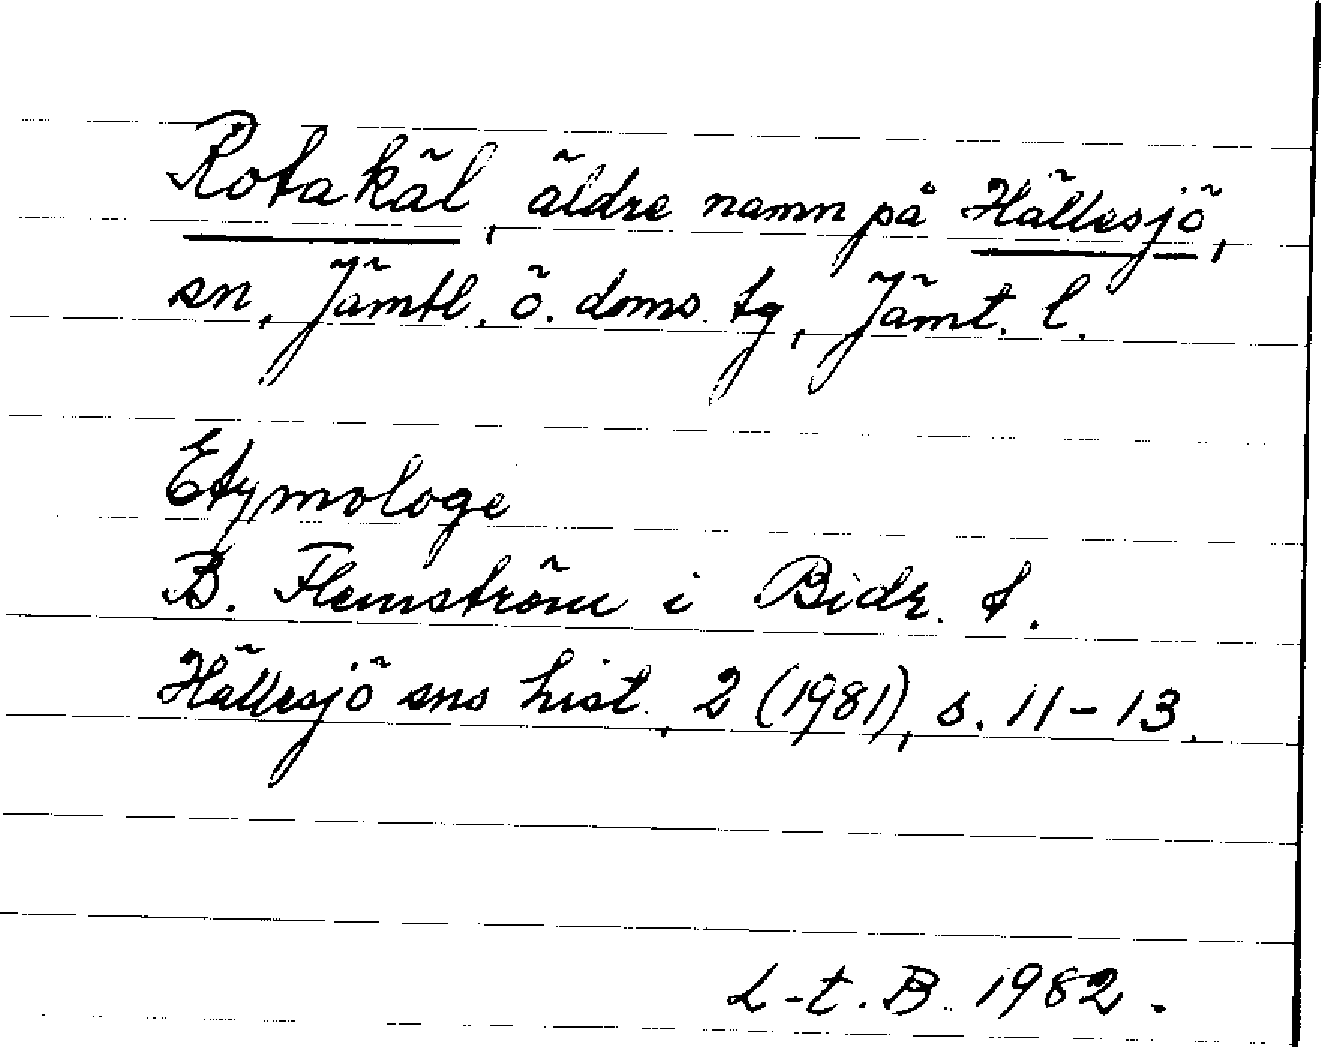 Rotakäl, äldre namn på Hällesjö,
sn, Jämtl. ö. doms. tg, Jämt. l.
Etymologe
B. Flemström i Bidr. t.
Hällesjö sns hist. 2 (1981), s. 11-13.
L-t. B. 1982.